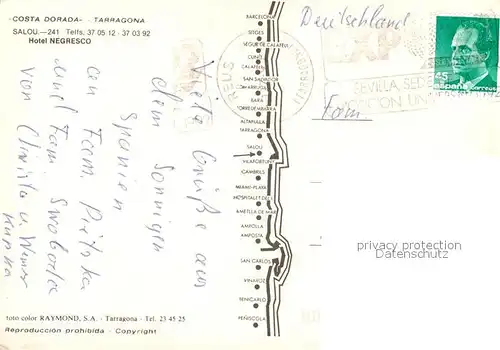 "COSTA DORADA" - TARRAGONA
SALOU.—241 Telfs. 37 05 12 - 37 03 92
Hotel NEGRESCO
Viele Grüße aus
dem Sonnigen
Spanien
an Fam.
und Fam. Swoboda
von Christa u. Werner
BARCELONA
SITGES
SEGUR DE CALAFELL
CUNIT
CALAFELL
SAN SALVADOR
BARA
TORREDEMBARRA
ALTAFULLA
TARRAGONA
SALOU
VILAFORTUNY
CAMBRILS
MIAMI-PLAYA
HOSPITALET DEL I.
AMETLLA DE MAR
AMPOLLA
AMPOSTA
SAN CARLOS
VINAROZ
BENICARLO
PEÑISCOLA
Deutschland
REUS
SEVILLA, SEDE
Fam.
45
españa
correos
privacy protection
foto color RAYMOND, S.A. - Tarragona - Tel. 23 45 25
Reproducción prohibida - Copyright